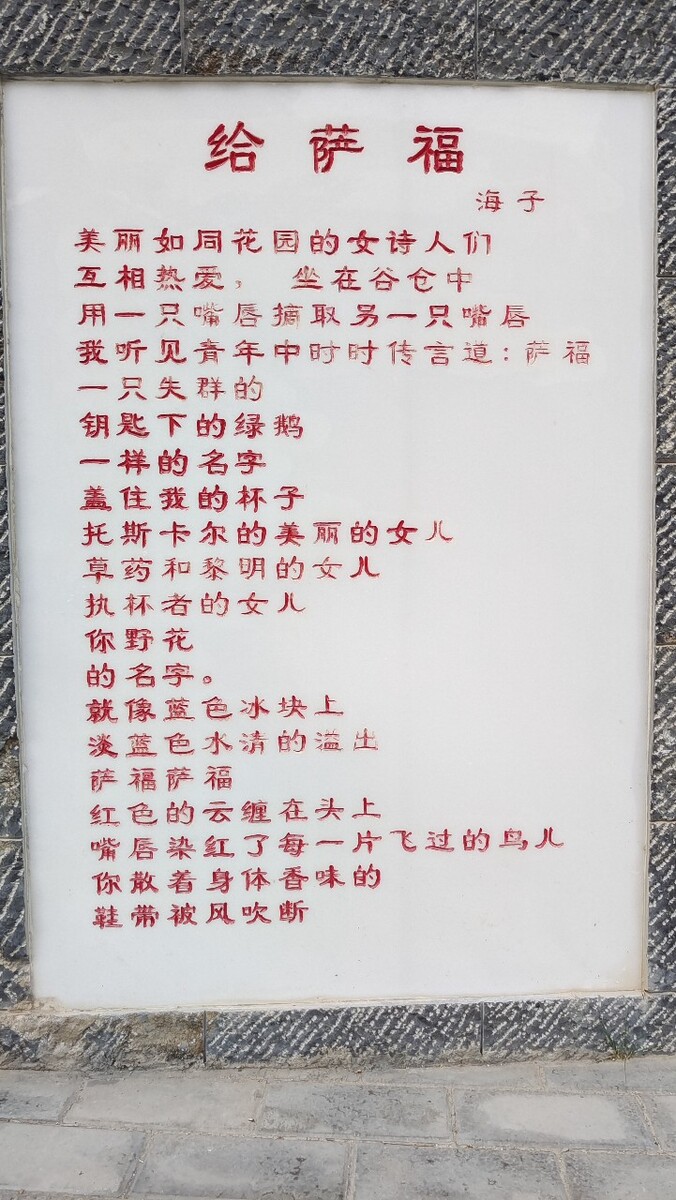 给萨福
海子
美丽如同花园的女诗人们
互相热爱，坐在谷仓中
用一只嘴唇摘取另一只嘴唇
我听见青年中时时传言道：萨福
一只失群的
钥匙下的绿鹅
一样的名字
盖住我的杯子
托斯卡尔的美丽的女儿
草药和黎明的女儿
执杯者的女儿
你野花
的名字。
就像蓝色冰块上
淡蓝色水清的溢出
萨福萨福
红色的云缠在头上
嘴唇染红了每一片飞过的鸟儿
你散着身体香味的
鞋带被风吹断